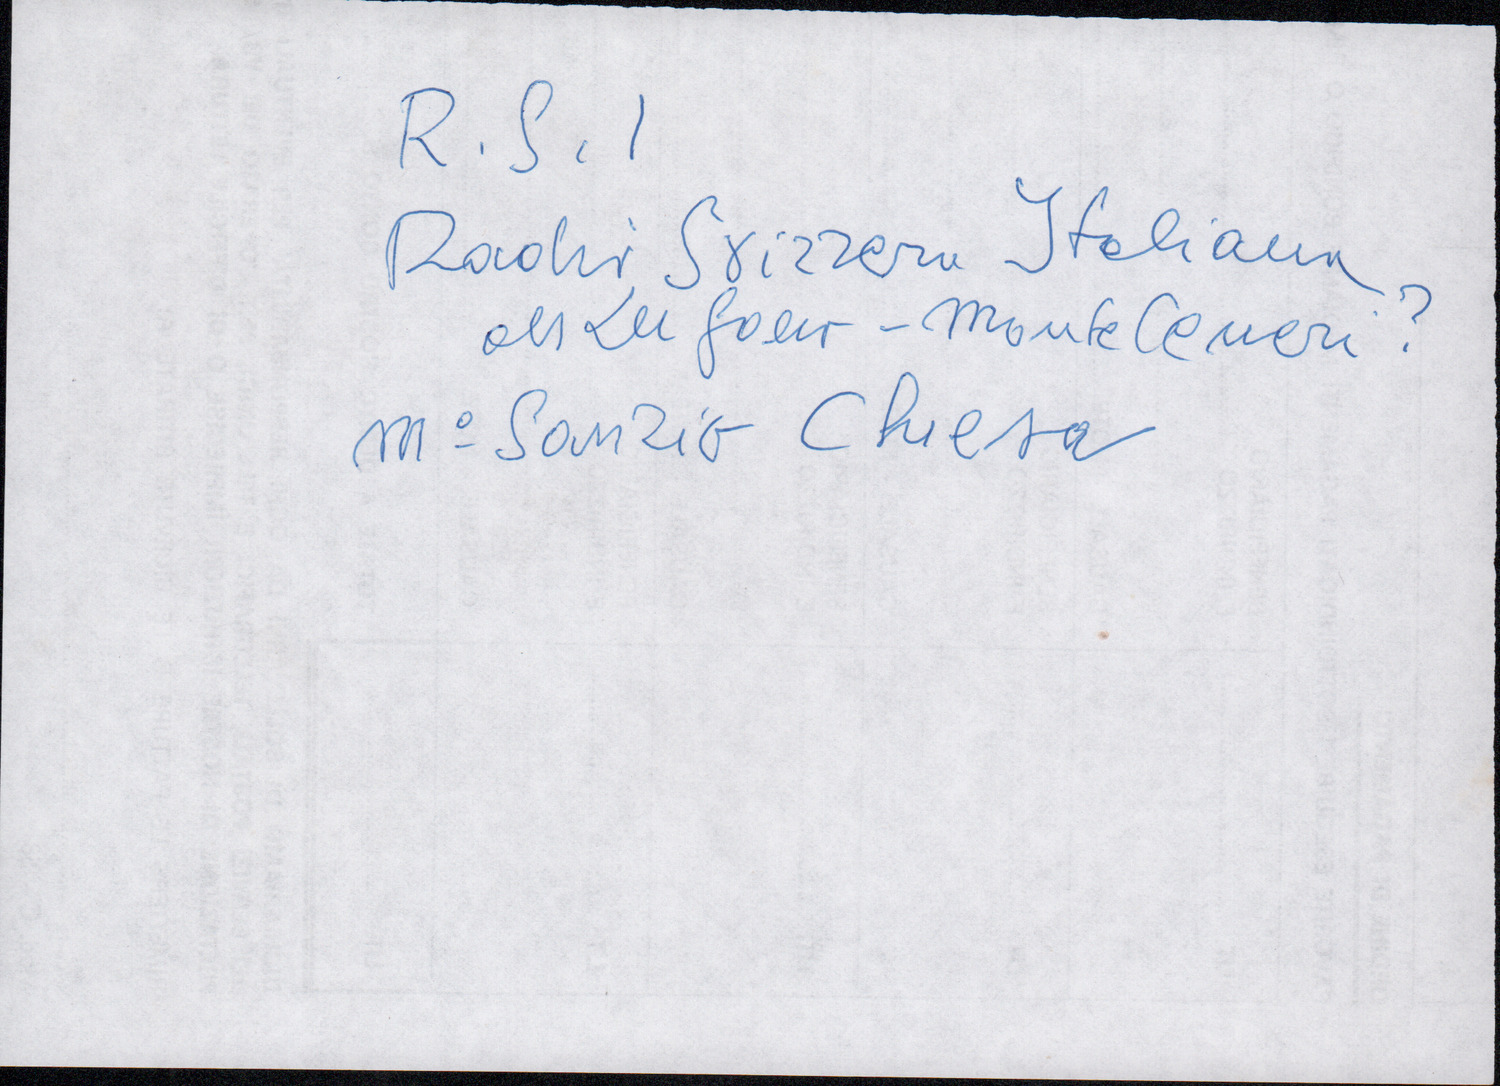 R.S.I
Radio Svizzera Italiana
di Lugano - Monte Ceneri?
Mº Sanzio Chiesa